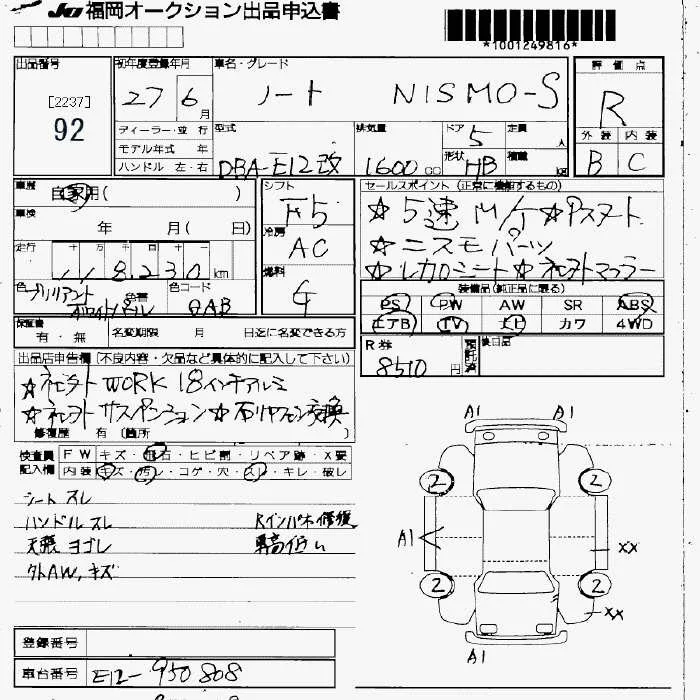 JU 福岡オークション出品申込書
*1001249816*
出品番号
[2237]
92
初年度登録年月
27 6月
ディーラー・並行
モデル年式 年
ハンドル 左・右
車名・グレード
ノート NISMO-S
型式
DBA-E12改
排気量
1600 CC
ドア
5
形状
HB
定員 人
積載 kg
評価点
R
外装 内装
B C
車歴
自家用( )
車検
年 月( 日)
走行
十 万 千 百 十
118230 km
色
ブリリアント
ホワイトパール
色替
色コード
QAB
シフト
F5
冷房
AC
燃料
G
セールスポイント (正常に機能するもの)
☆5速M/T ☆Pスタート
☆ニスモパーツ
☆レカロシート ☆社外マフラー
装備品(純正品に限る)
PS PW AW SR ABS
エアB TV ナビ カワ 4WD
保証書
有・無
名変期限 月 日迄に名変できる方
R券
8510 円
預託済
後日品
出品店申告欄 (不良内容・欠品など具体的に記入して下さい)
☆社外WORK 18インチアルミ
☆社外サスペンション
修復歴 有 (箇所
検査員
記入欄
FW キズ・飛石・ヒビ割・リペア跡・X要
内装 キズ・汚レ・コゲ・穴・スレ・キレ・破レ
シートスレ
ハンドルスレ Rインパネ修復
天張ヨゴレ 車高低い
外AW、キズ
A1 A1
2 2
A1 XX
2 2
XX
A1
登録番号
車台番号 E12-950808